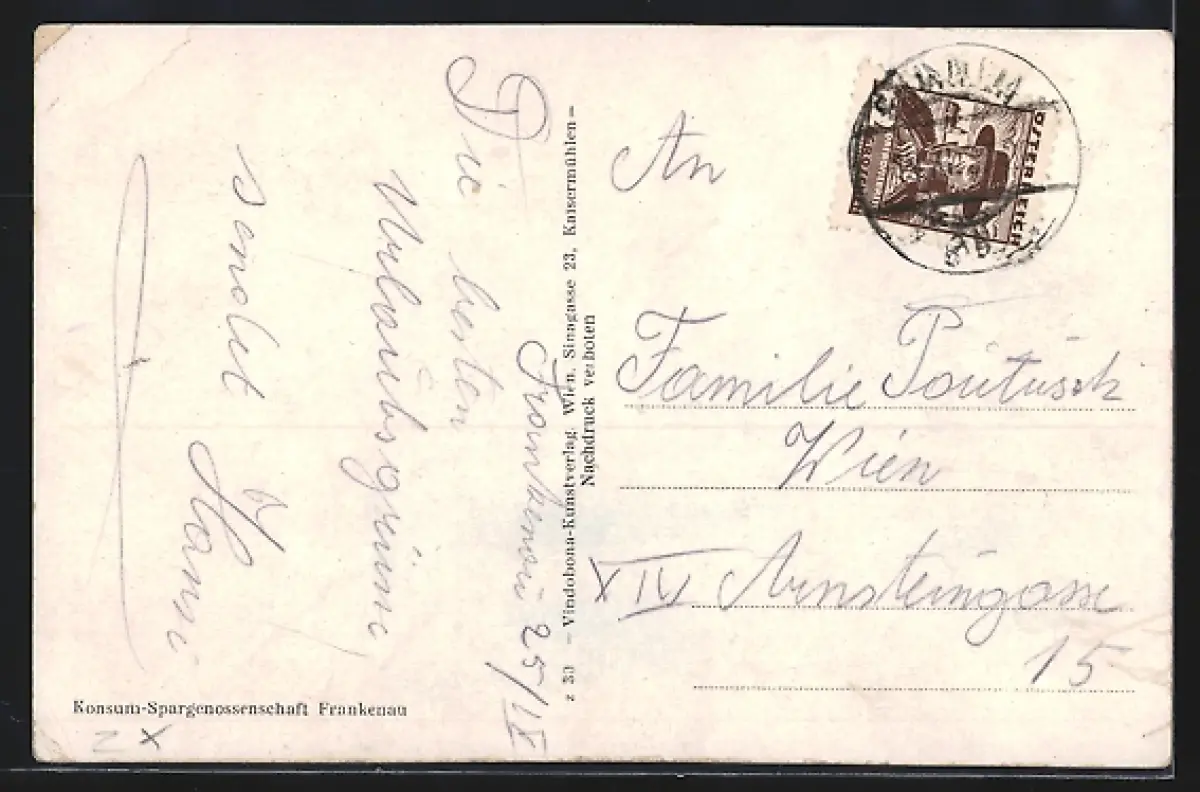 Die besten
Urlaubsgrüße
sendet
Frankenau 25/IX
z 30 – Vindobona-Kunstverlag, Wien, Sinagasse 23, Kaisermühlen –
Nachdruck verboten
An
Familie
Wien
XIV Arnsteingasse
15
ÖSTERREICH
Konsum-Spargenossenschaft Frankenau
N X